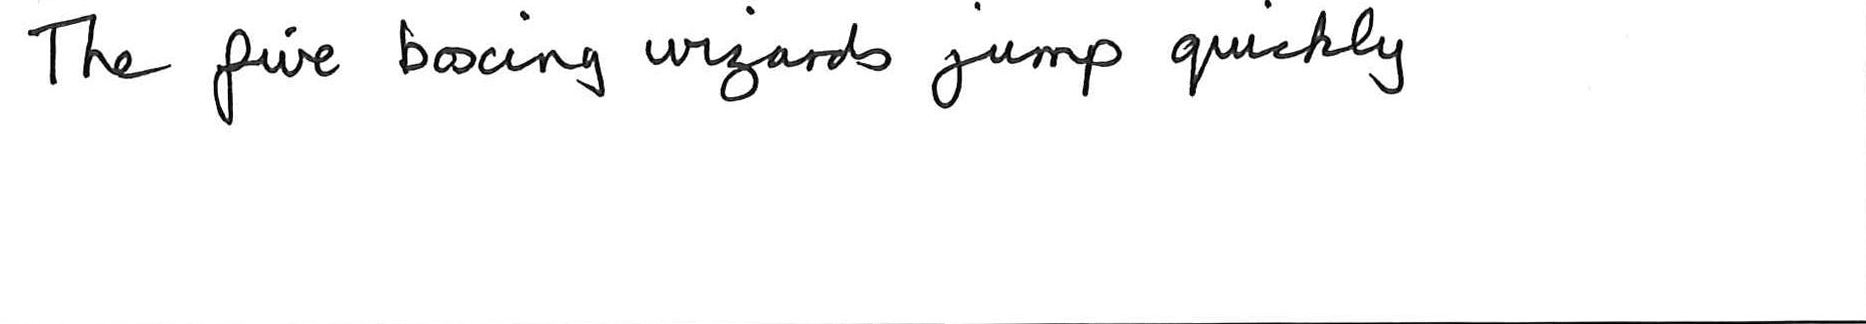 The five boxing wizards jump quickly